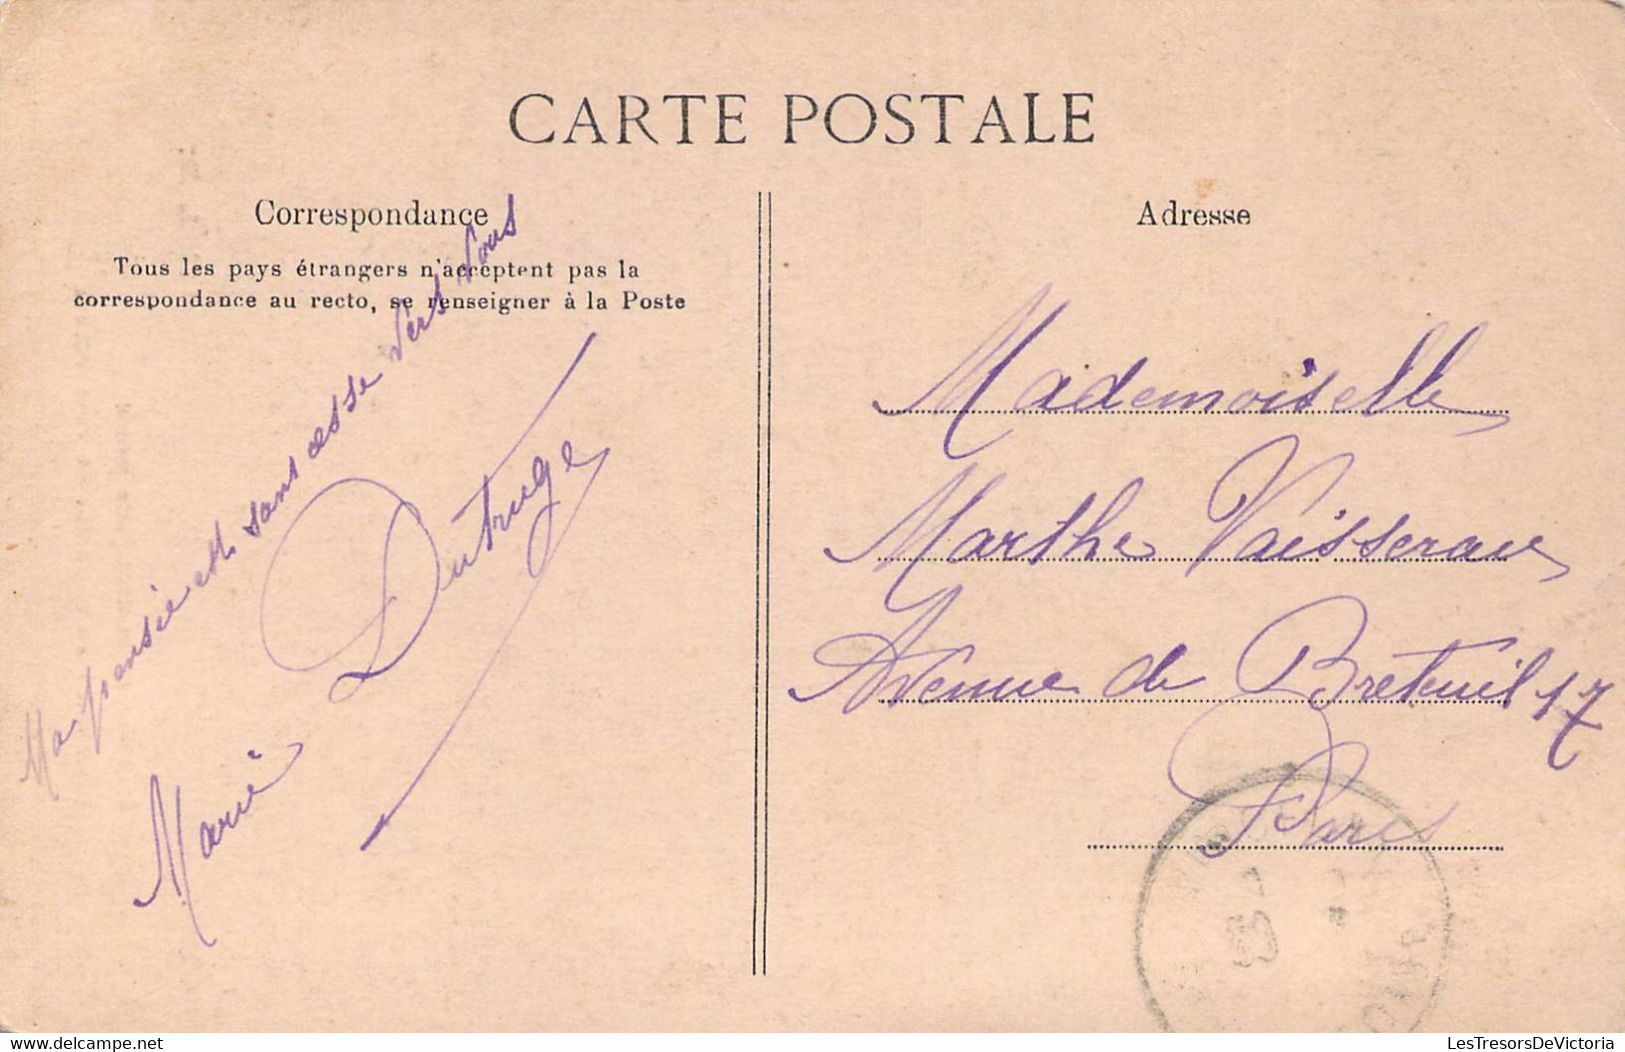 CARTE POSTALE
Correspondance
Tous les pays étrangers n'acceptent pas la
correspondance au recto, se renseigner à la Poste
Ma pensée est sans cesse vers vous
Marie Dutruge
Adresse
Mademoiselle
Marthe Vaisserau
Avenue de Breteuil 17
Paris
LesTresorsDeVictoria